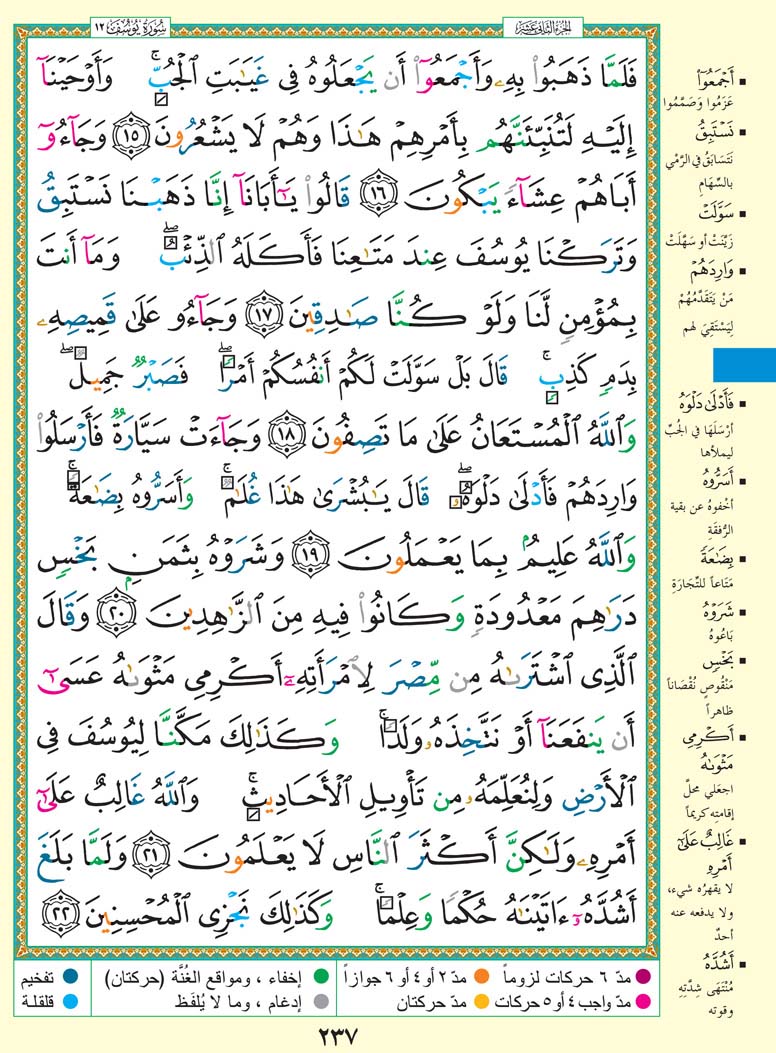 سُورَةُ يُوسُفَ ١٢
الجزء الثاني عشر
فَلَمَّا ذَهَبُوا۟ بِهِۦ وَأَجْمَعُوٓا۟ أَن يَجْعَلُوهُ فِى غَيَـٰبَتِ ٱلْجُبِّ ۚ وَأَوْحَيْنَآ
إِلَيْهِ لَتُنَبِّئَنَّهُم بِأَمْرِهِمْ هَـٰذَا وَهُمْ لَا يَشْعُرُونَ ١٥ وَجَآءُوٓ
أَبَاهُمْ عِشَآءً يَبْكُونَ ١٦ قَالُوا۟ يَـٰٓأَبَانَآ إِنَّا ذَهَبْنَا نَسْتَبِقُ
وَتَرَكْنَا يُوسُفَ عِندَ مَتَـٰعِنَا فَأَكَلَهُ ٱلذِّئْبُ ۖ وَمَآ أَنتَ
بِمُؤْمِنٍ لَّنَا وَلَوْ كُنَّا صَـٰدِقِينَ ١٧ وَجَآءُو عَلَىٰ قَمِيصِهِۦ
بِدَمٍ كَذِبٍ ۚ قَالَ بَلْ سَوَّلَتْ لَكُمْ أَنفُسُكُمْ أَمْرًا ۖ فَصَبْرٌ جَمِيلٌ ۖ
وَٱللَّهُ ٱلْمُسْتَعَانُ عَلَىٰ مَا تَصِفُونَ ١٨ وَجَآءَتْ سَيَّارَةٌ فَأَرْسَلُوا۟
وَارِدَهُمْ فَأَدْلَىٰ دَلْوَهُۥ ۖ قَالَ يَـٰبُشْرَىٰ هَـٰذَا غُلَـٰمٌ ۚ وَأَسَرُّوهُ بِضَـٰعَةً ۚ
وَٱللَّهُ عَلِيمٌۢ بِمَا يَعْمَلُونَ ١٩ وَشَرَوْهُ بِثَمَنٍۭ بَخْسٍ
دَرَٰهِمَ مَعْدُودَةٍ وَكَانُوا۟ فِيهِ مِنَ ٱلزَّٰهِدِينَ ٢٠ وَقَالَ
ٱلَّذِى ٱشْتَرَىٰهُ مِن مِّصْرَ لِٱمْرَأَتِهِۦٓ أَكْرِمِى مَثْوَىٰهُ عَسَىٰٓ
أَن يَنفَعَنَآ أَوْ نَتَّخِذَهُۥ وَلَدًا ۚ وَكَذَٰلِكَ مَكَّنَّا لِيُوسُفَ فِى
ٱلْأَرْضِ وَلِنُعَلِّمَهُۥ مِن تَأْوِيلِ ٱلْأَحَادِيثِ ۚ وَٱللَّهُ غَالِبٌ عَلَىٰٓ
أَمْرِهِۦ وَلَـٰكِنَّ أَكْثَرَ ٱلنَّاسِ لَا يَعْلَمُونَ ٢١ وَلَمَّا بَلَغَ
أَشُدَّهُۥٓ ءَاتَيْنَـٰهُ حُكْمًا وَعِلْمًا ۚ وَكَذَٰلِكَ نَجْزِى ٱلْمُحْسِنِينَ ٢٢
▪ أَجْمَعُوٓا۟
عَزَمُوا وَصَمَّمُوا
▪ نَسْتَبِقُ
نَتَسَابَقُ في الرَّمْي
بالسِّهَامِ
▪ سَوَّلَتْ
زَيَّنَتْ أو سَهَّلَتْ
▪ وَارِدَهُمْ
مَنْ يَتَقَدَّمُهُمْ
لِيَسْتَقِيَ لهم
▪ فَأَدْلَىٰ دَلْوَهُ
أرْسَلَهَا في الجُبّ
ليملأها
▪ أَسَرُّوهُ
أخفوهُ عن بقية
الرُّفقَةِ
▪ بِضَـٰعَةً
مَتَاعاً للتِّجَارَةِ
▪ شَرَوْهُ
بَاعُوهُ
▪ بَخْسٍ
مَنْقُوصٍ نُقْصَاناً
ظاهراً
▪ أَكْرِمِى
مَثْوَىٰهُ
اجعلي محلَّ
إقامتِه كريماً
▪ غَالِبٌ عَلَىٰٓ
أَمْرِهِ
لا يقهرُه شيء،
ولا يدفعه عنه
أحدٌ
▪ أَشُدَّهُ
مُنْتَهَى شِدَّتِهِ
وقوته
مدّ ٦ حركات لزوماً
مدّ ٢ أو ٤ أو ٦ جوازاً
إخفاء ، ومواقع الغُنَّة (حركتان)
تفخيم
مدّ واجب ٤ أو ٥ حركات
مدّ حركتان
إدغام ، وما لا يُلفَظ
قلقلة
٢٣٧